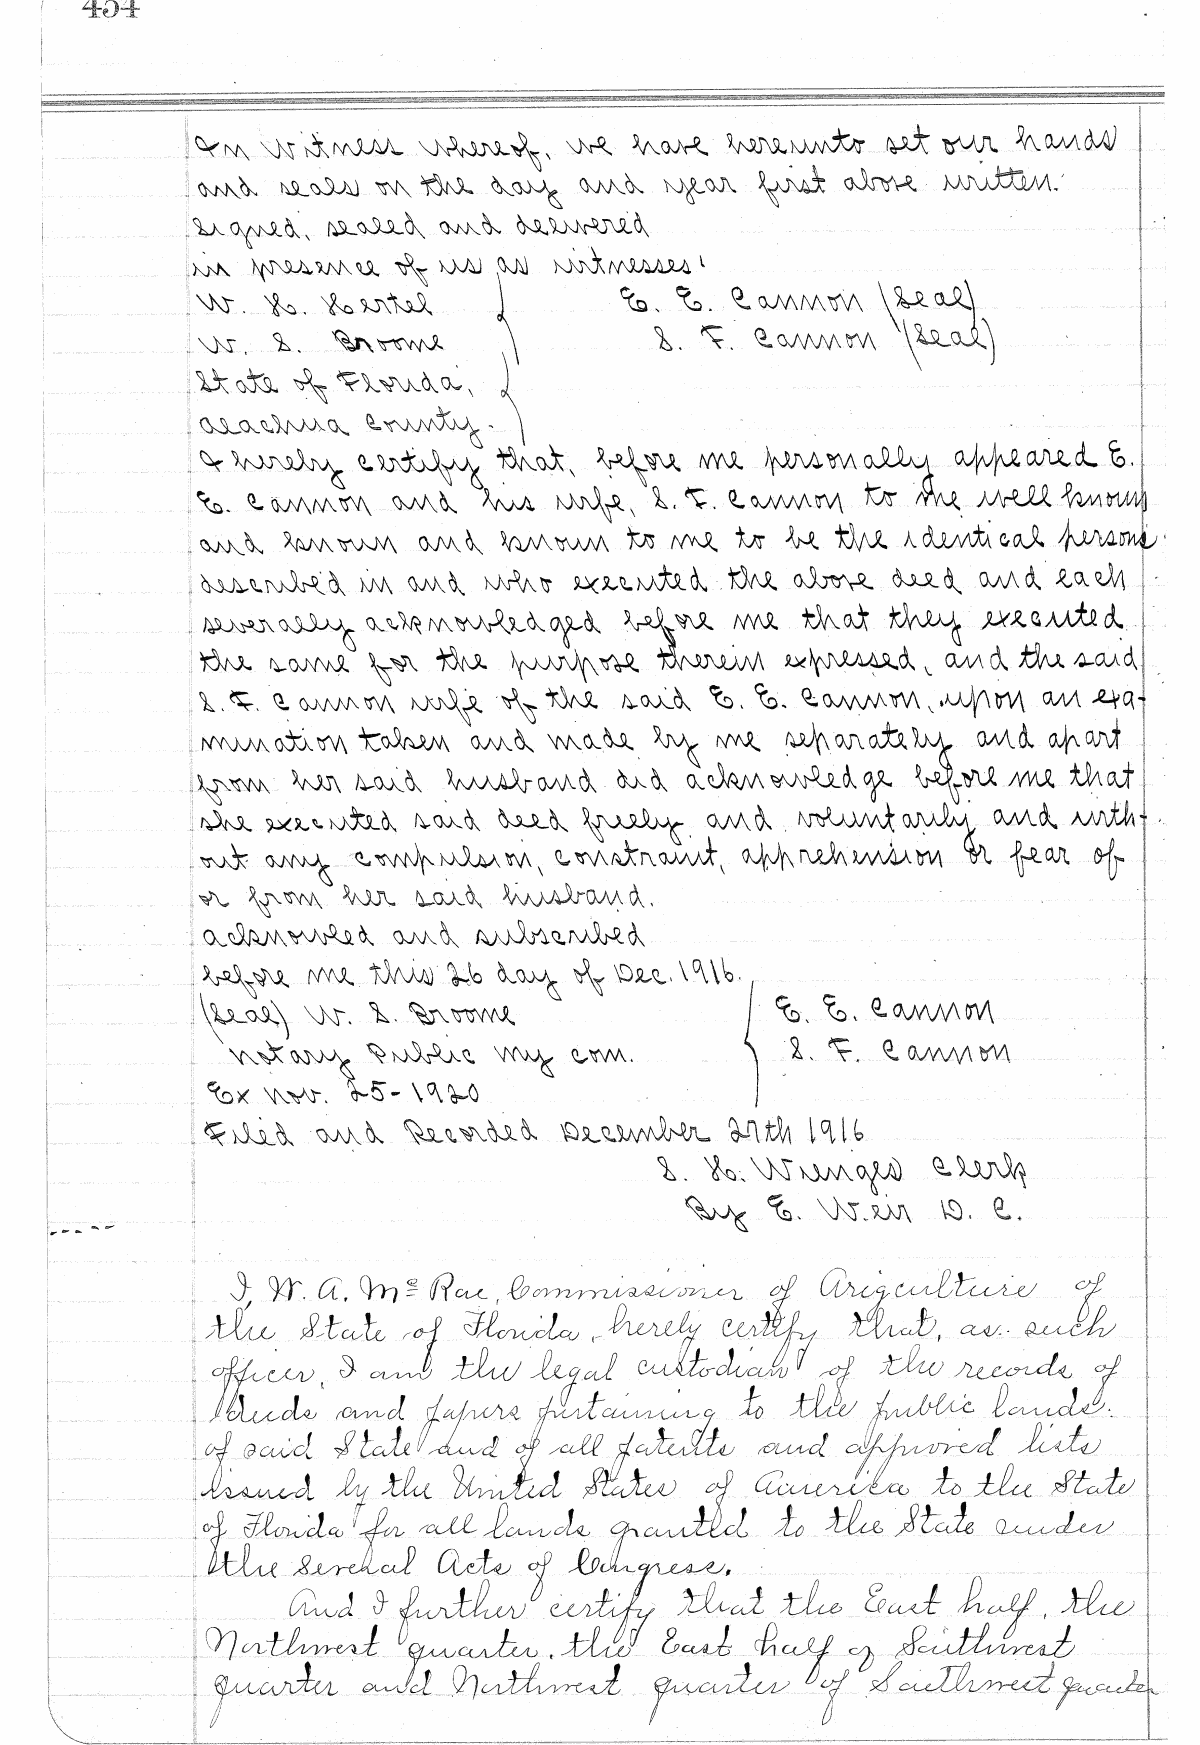 454
In Witness whereof, we have hereunto set our hands
and seals on the day and year first above written.
Signed, sealed and delivered
in presence of us as witnesses:
W. H. Hertel } E. E. Cannon (Seal)
W. S. Broome } S. F. Cannon (Seal)
State of Florida, }
Alachua County. }
I hereby certify that, before me personally appeared E.
E. Cannon and his wife, S. F. Cannon to me well known
and known and known to me to be the identical persons
described in and who executed the above deed and each
severally acknowledged before me that they executed
the same for the purpose therein expressed, and the said
S. F. Cannon wife of the said E. E. Cannon, upon an exa-
mination taken and made by me separately and apart
from her said husband did acknowledge before me that
she executed said deed freely and voluntarily and with-
out any compulsion, constraint, apprehension or fear of
or from her said husband.
acknowled and subscribed
before me this 26 day of Dec. 1916.
(Seal) W. S. Broome } E. E. Cannon
Notary Public My com. } S. F. Cannon
Ex Nov. 25-1920
Filed and Recorded December 27th 1916
S. H. Wienges Clerk
By E. Weir D. C.
I, W. A. McRae, Commissioner of Arigculture of
the State of Florida, herely certify that, as such
officer, I am the legal custodian of the records of
deeds and papers pertaining to the public lands.
of said State and of all patents and approved lists
issued by the United States of America to the State
of Florida for all lands granted to the State under
the several Acts of Congress.
And I further certify that the East half, the
Northwest quarter, the East half of Southwest
quarter and Northwest quarter of Southwest quarter